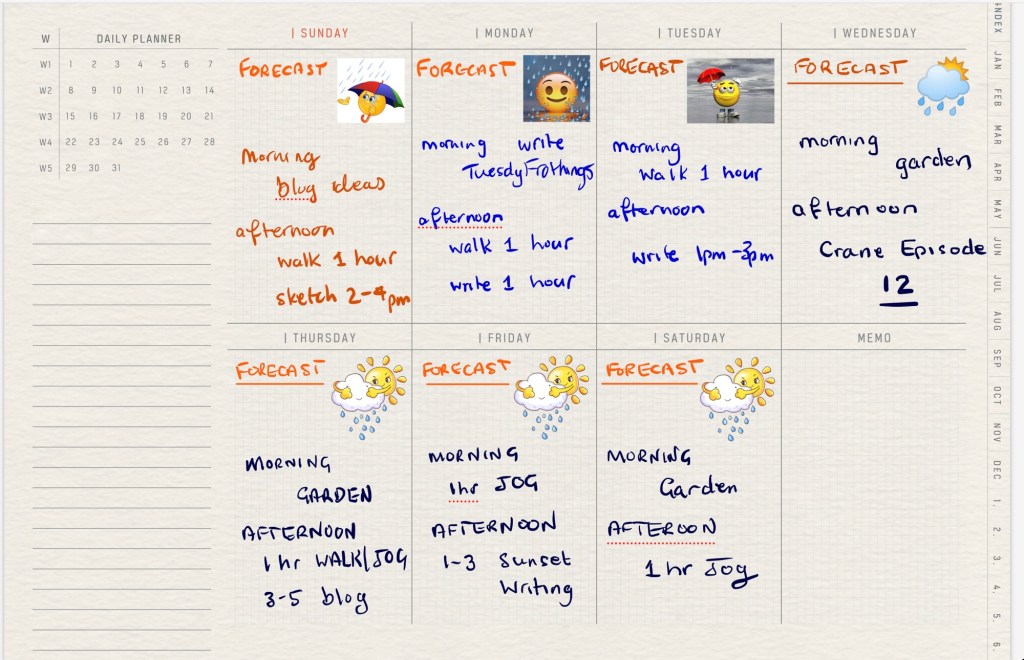 W DAILY PLANNER
W1 1 2 3 4 5 6 7
W2 8 9 10 11 12 13 14
W3 15 16 17 18 19 20 21
W4 22 23 24 25 26 27 28
W5 29 30 31
| SUNDAY
FORECAST
Morning
blog ideas
afternoon
walk 1 hour
sketch 2-4pm
| MONDAY
FORECAST
morning write
TuesdyFrothings
afternoon
walk 1 hour
write 1 hour
| TUESDAY
FORECAST
morning
walk 1 hour
afternoon
write 1pm-3pm
| WEDNESDAY
FORECAST
morning
garden
afternoon
Crane Episode
12
| THURSDAY
FORECAST
MORNING
GARDEN
AFTERNOON
1 hr WALK/JOG
3-5 blog
| FRIDAY
FORECAST
MORNING
1hr JOG
AFTERNOON
1-3 Sunset
Writing
| SATURDAY
FORECAST
MORNING
Garden
AFTEROON
1 hr Jog
MEMO
INDEX
JAN
FEB
MAR
APR
MAY
JUN
JUL
AUG
SEP
OCT
NOV
DEC
1.
2.
3.
4.
5.
6.